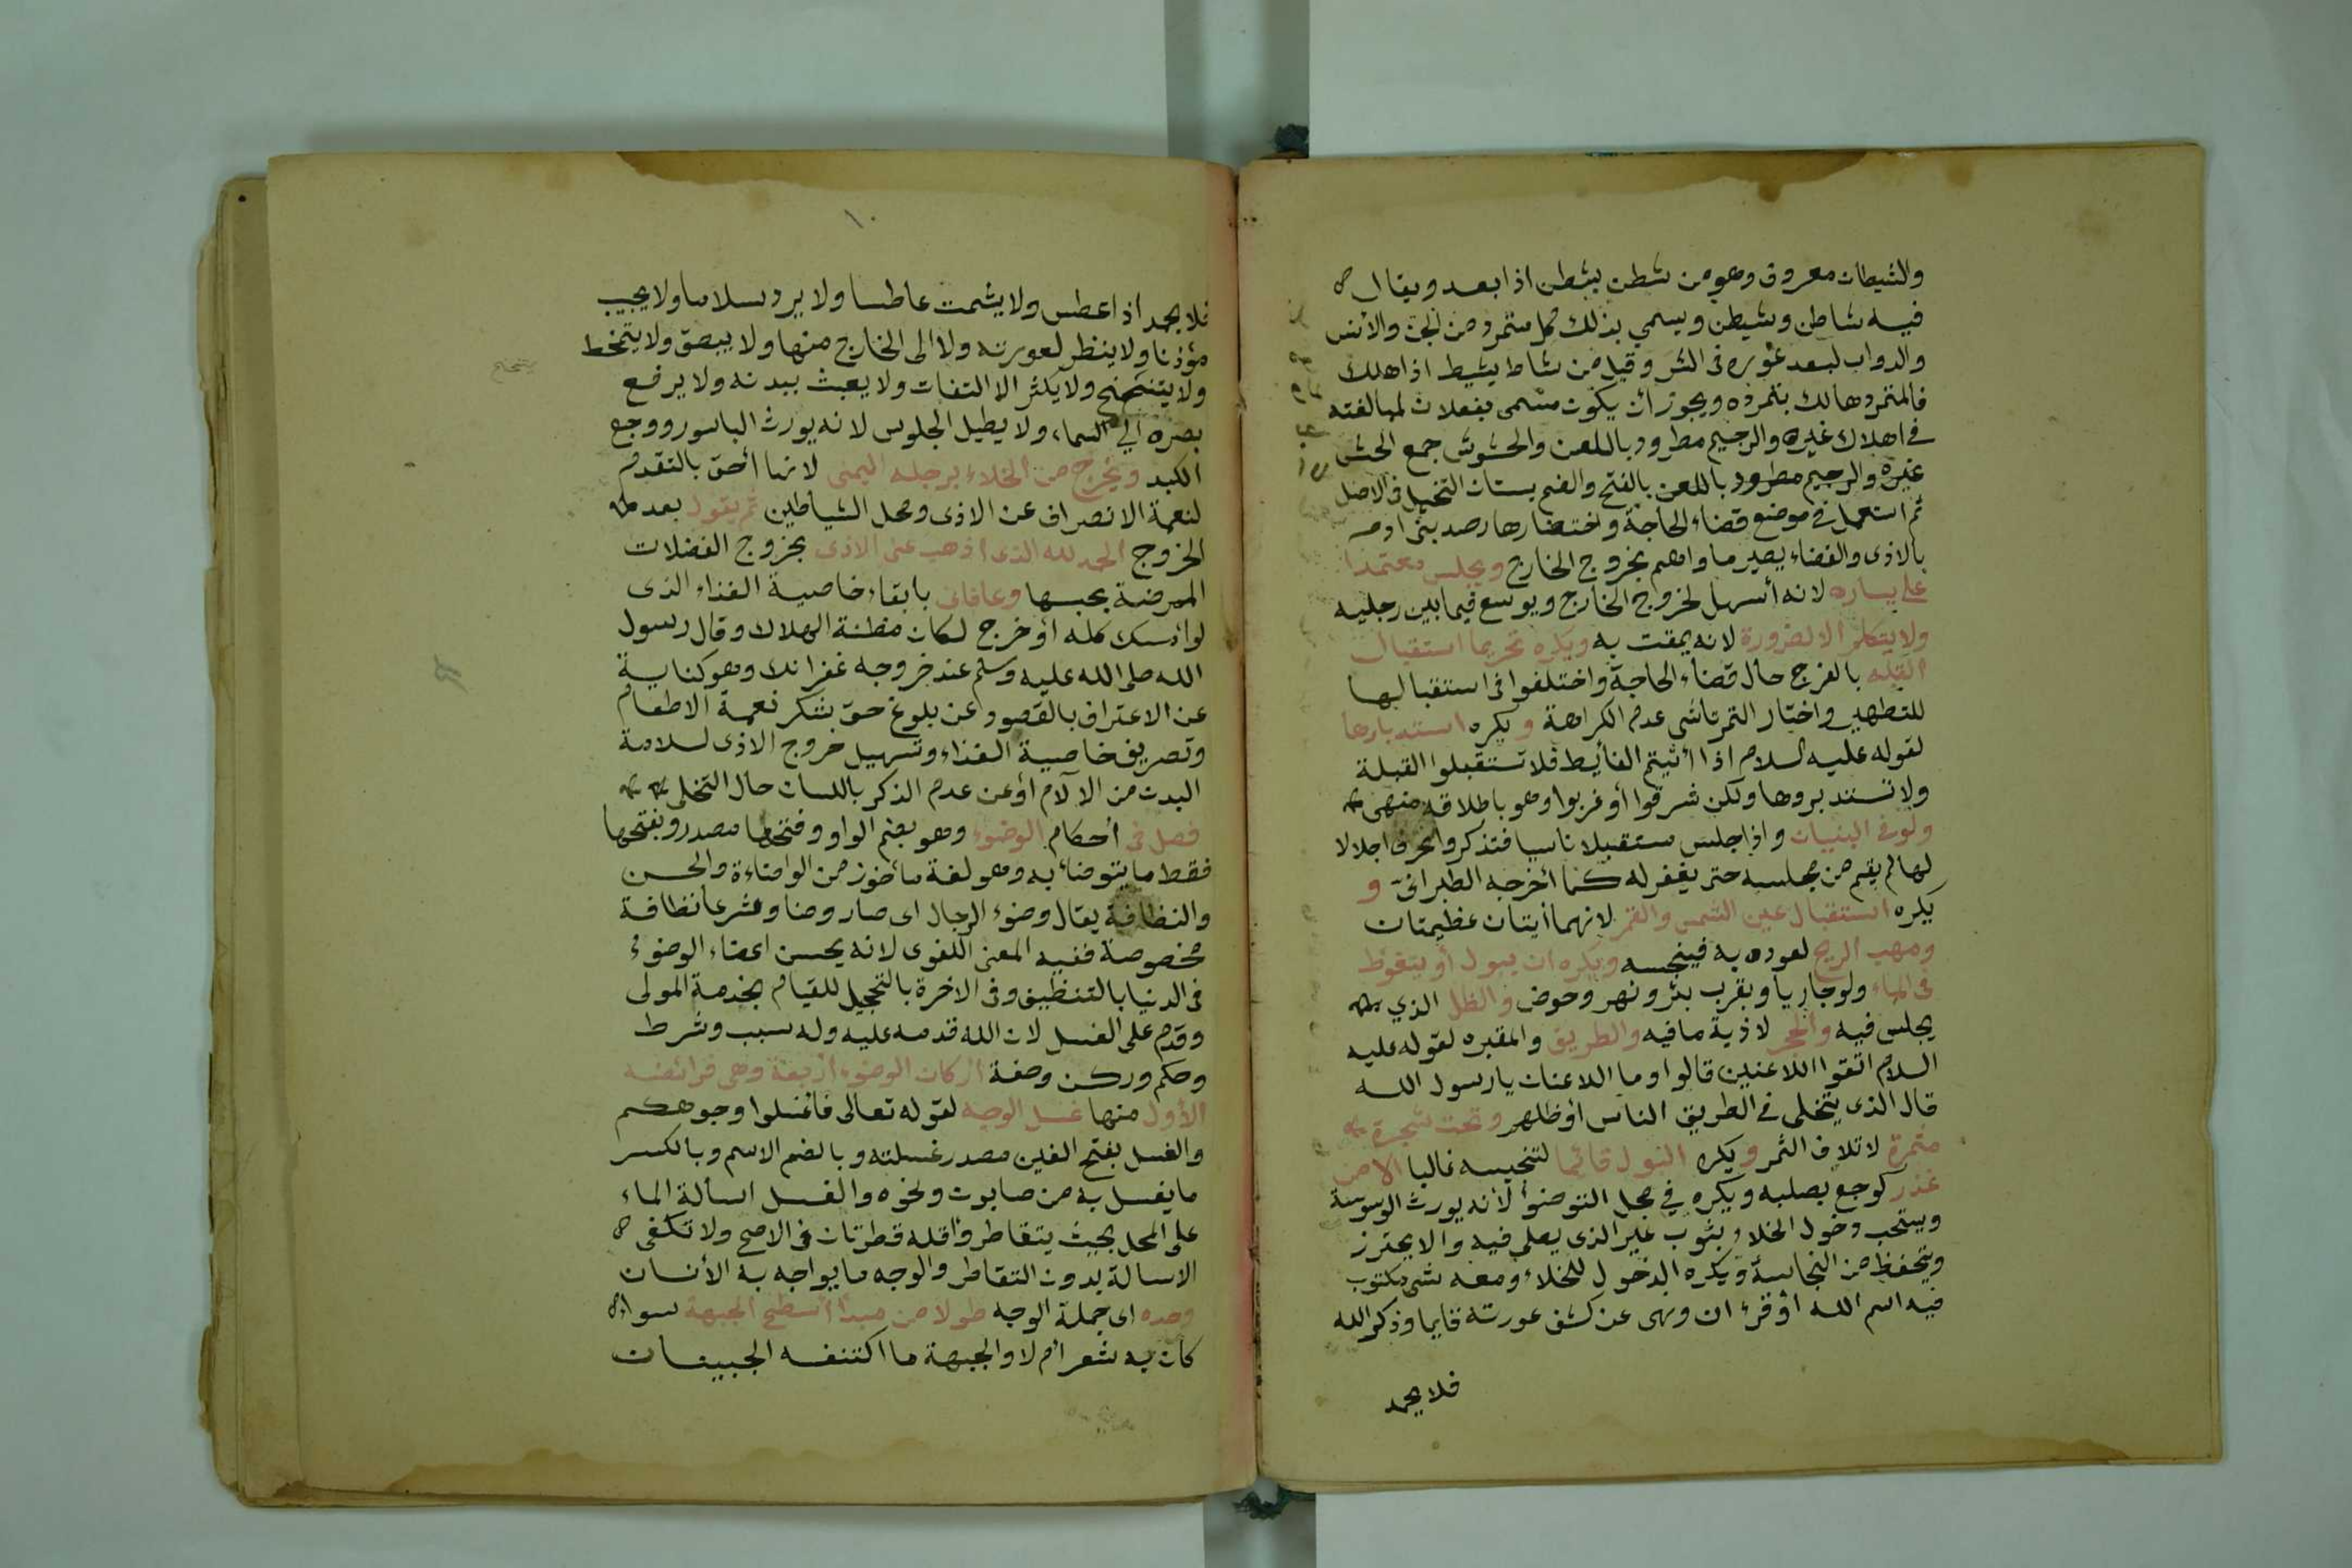 والشيطان معروف وهو من شطن يشطن اذا بعد ويقال
فيه شاطن وشيطن ويسمي بذلك كل متمرد من الجن والانس
والدواب لبعد غوره فى الشر وقيل من شاط يشيط اذا هلك
فالمتمرد هالك بتمرده ويجوز أن يكون مسمى بفعلان لمبالغته
في اهلاك غيره والرجيم مطرود باللعن والحشوش جمع الحش
غيره والرجيم مطرود باللعن بالفتح والضم بستان النخيل فى الاصل
ثم استعمل في موضع قضاء الحاجة واحتضارها رصد بنى ادم
بالاذى والفضاء يصير ماواهم بخروج الخارج ويجلس معتمدا
على يساره لانه أسهل لخروج الخارج ويوسع فيما بين رجليه
ولا يتكلم الا لضرورة لانه يمقت به ويكره تحريما استقبال
القبله بالفرج حال قضاء الحاجة واختلفوا فى استقبالها
للتطهير واختار التمرتاشى عدم الكراهة و يكره استدبارها
لقوله عليه السلام اذا أتيتم الغائط فلا تستقبلوا القبلة
ولا تستدبروها ولكن شرقوا أو غربوا وهو باطلاقه منهى
ولو في البنيان واذا جلس مستقبلا ناسيا فتذكر وانحرف اجلالا
لها لم يقم من مجلسه حتى يغفر له كما أخرجه الطبرانى و
يكره استقبال عين الشمس والقمر لانهما أيتان عظيمتان
ومهب الريح لعوده به فينجسه ويكره ان يبول أو يتغوط
فى الماء ولو جاريا وبقرب بئر ونهر وحوض والظل الذي
يجلس فيه والجحر لاذية ما فيه والطريق والمقبره لقوله عليه
السلام اتقوا اللاعنين قالوا وما اللاعنان يا رسول الله
قال الذى يتخلى في الطريق الناس أو ظلهم وتحت شجرة
مثمرة لاتلاف الثمر ويكره البول قائما لتنجيسه غالبا الا من
عذر كوجع بصلبه ويكره في محل التوضوأ لأنه يورث الوسوسة
ويستحب دخول الخلاء بثوب غير الذى يصلى فيه والا يحترز
ويتحفظ من النجاسة ويكره الدخول للخلاء ومعه شى مكتوب
فيه اسم الله أو قرءان ونهى عن كشف عورته قايما وذكر الله
فلا يحمد
١٠
فلا يحمد اذا عطس ولا يشمت عاطسا ولا يرد سلاما ولا يجيب
مؤذنا ولا ينظر لعورته ولا الى الخارج منها ولا يبصق ولا يتمخط
ولا يتنحنح ولا يكثر الالتفات ولا يعبث ببدنه ولا يرفع
بصره الي السماء ولا يطيل الجلوس لانه يورث الباسور ووجع
الكبد ويخرج من الخلاء برجله اليمنى لانها أحق بالتقدم
لنعمة الانصراف عن الاذى ومحل الشياطين ثم يقول بعد
الخروج الحمد لله الذى اذهب عنى الاذى بخروج الفضلات
الممرضة بحبسها وعافانى بابقاء خاصية الغذاء الذى
لو امسك كله أو خرج لكان مظنة الهلاك وقال رسول
الله صلى الله عليه وسلم عند خروجه غفرانك وهو كناية
عن الاعتراف بالقصور عن بلوغ حق شكر نعمة الاطعام
وتصريف خاصية الغذاء وتسهيل خروج الاذى لسلامة
البدن من الالآم أو عن عدم الذكر باللسان حال التخلى
فصل فى أحكام الوضوء وهو بضم الواو وفتحها مصدر وبفتحها
فقط ما يتوضأ به وهو لغة مأخوذ من الوضاءة والحسن
والنظافة يقال وضوء الرجال اى صار وضا وشرعا نظافة
مخصوصة ففيه المعنى اللغوى لانه يحسن اعضاء الوضوء
فى الدنيا بالتنظيف وفى الاخرة بالتحجيل للقيام بخدمة المولى
وقدم على الغسل لان الله قدمه عليه وله سبب وشرط
وحكم وركن وصفة اركان الوضوء أربعة وهى فرائضه
الأول منها غسل الوجه لقوله تعالى فاغسلوا وجوهكم
والغسل بفتح الغين مصدر غسلته وبالضم الاسم وبالكسر
ما يغسل به من صابون ونحوه والغسل اسألة الماء
على المحل بحيث يتقاطر واقله قطرتان فى الاصح ولا تكفى
الاسالة بدون التقاطر والوجه ما يواجه به الأنسان
وحده اى جملة الوجه طولا من مبدأ أسطح الجبهة سواء
كان به شعر أم لا والجبهة ما اكتنفه الجبينان